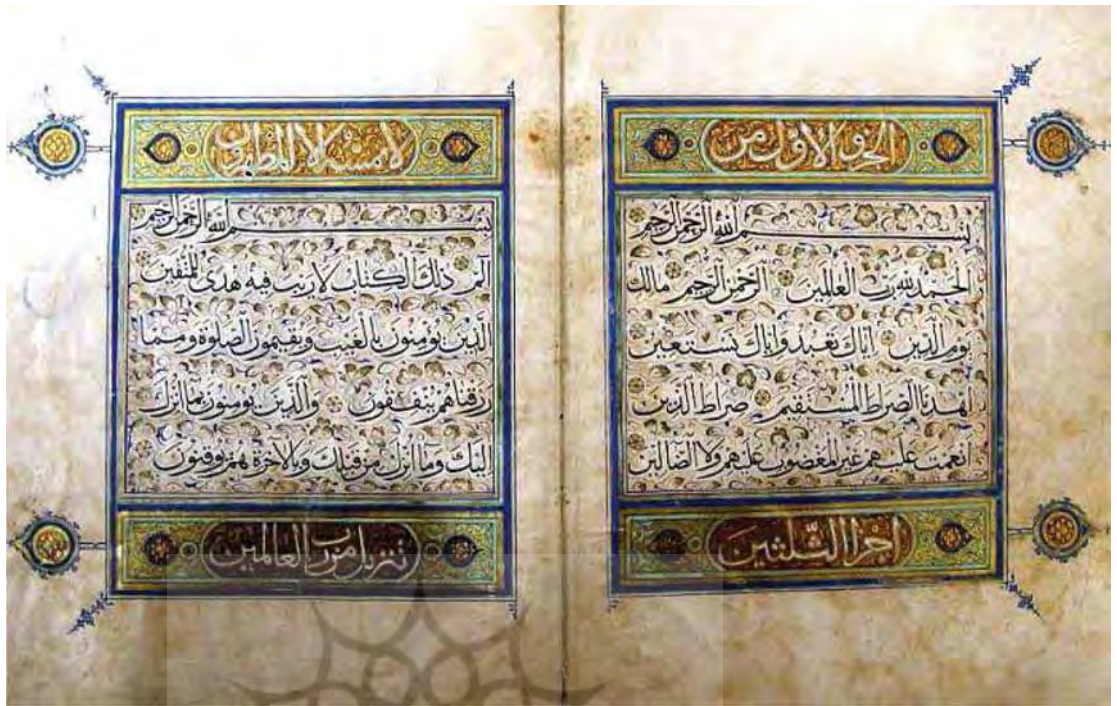 الجزو الاول من
بسم الله الرحمن الرحيم
الحمد لله رب العالمين الرحمن الرحيم مالك
يوم الدين اياك نعبد واياك نستعين
اهدنا الصراط المستقيم صراط الذين
انعمت عليهم غير المغضوب عليهم ولا الضالين
اجزا الثلثين
لا يمسه الا المطهرون
بسم الله الرحمن الرحيم
الم ذلك الكتاب لا ريب فيه هدى للمتقين
الذين يؤمنون بالغيب ويقيمون الصلوة ومما
رزقناهم ينفقون والذين يؤمنون بما انزل
اليك وما انزل من قبلك وبالاخرة هم يوقنون
تنزيل من رب العالمين